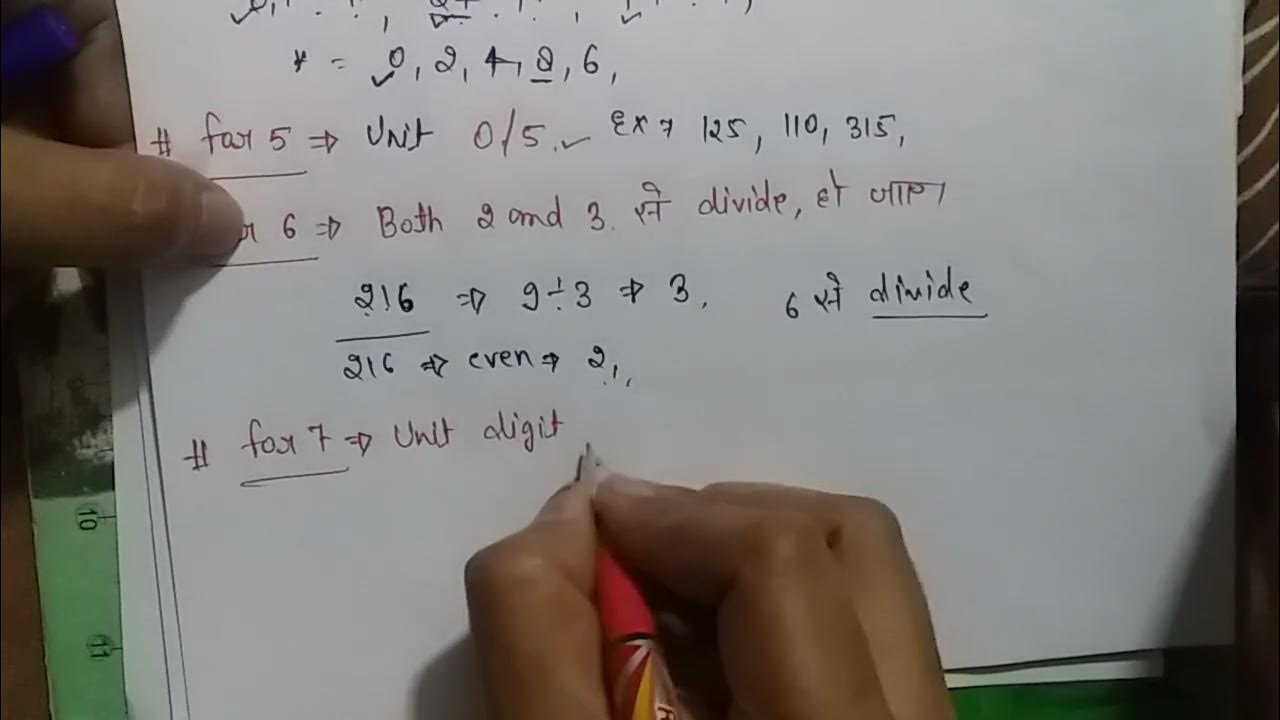 * = 0, 2, 4, 8, 6,
# for 5 ⇒ Unit 0/5. ✓ Ex → 125, 110, 315,
6 ⇒ Both 2 and 3. से divide, हो जाए।
216 ⇒ 9÷3 ⇒ 3, 6 से divide
216 ⇒ even ⇒ 2,
# for 7 ⇒ Unit digit
10
11